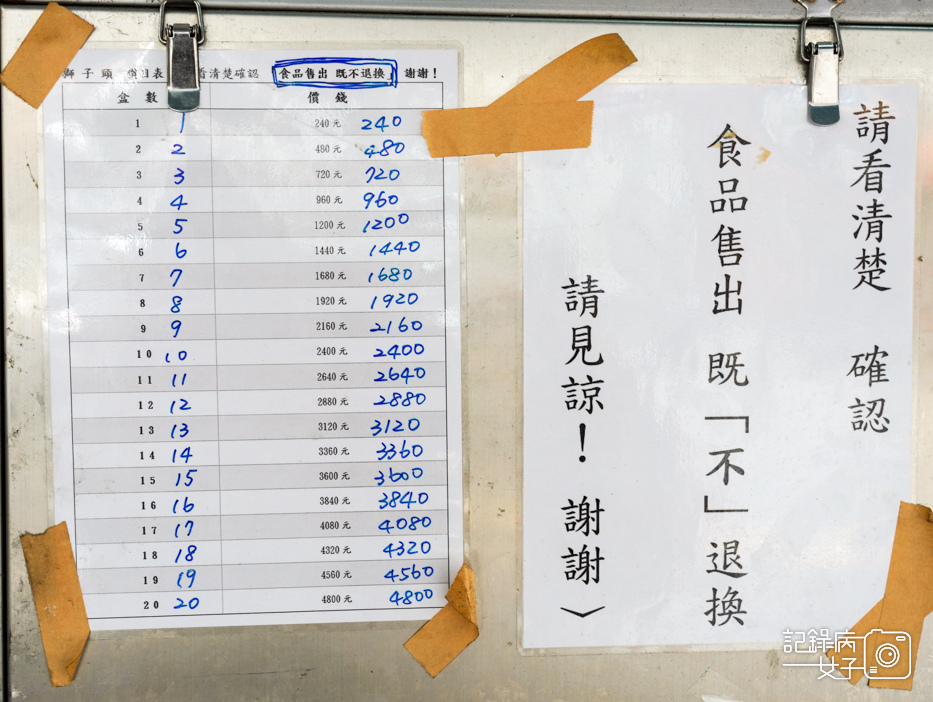 獅子頭 價目表 看清楚確認 食品售出 既不退換 謝謝!
盒數 價錢
1 1 240元 240
2 2 480元 480
3 3 720元 720
4 4 960元 960
5 5 1200元 1200
6 6 1440元 1440
7 7 1680元 1680
8 8 1920元 1920
9 9 2160元 2160
10 10 2400元 2400
11 11 2640元 2640
12 12 2880元 2880
13 13 3120元 3120
14 14 3360元 3360
15 15 3600元 3600
16 16 3840元 3840
17 17 4080元 4080
18 18 4320元 4320
19 19 4560元 4560
20 20 4800元 4800
請看清楚 確認
食品售出 既「不」退換
請見諒! 謝謝~
記錄病
女子